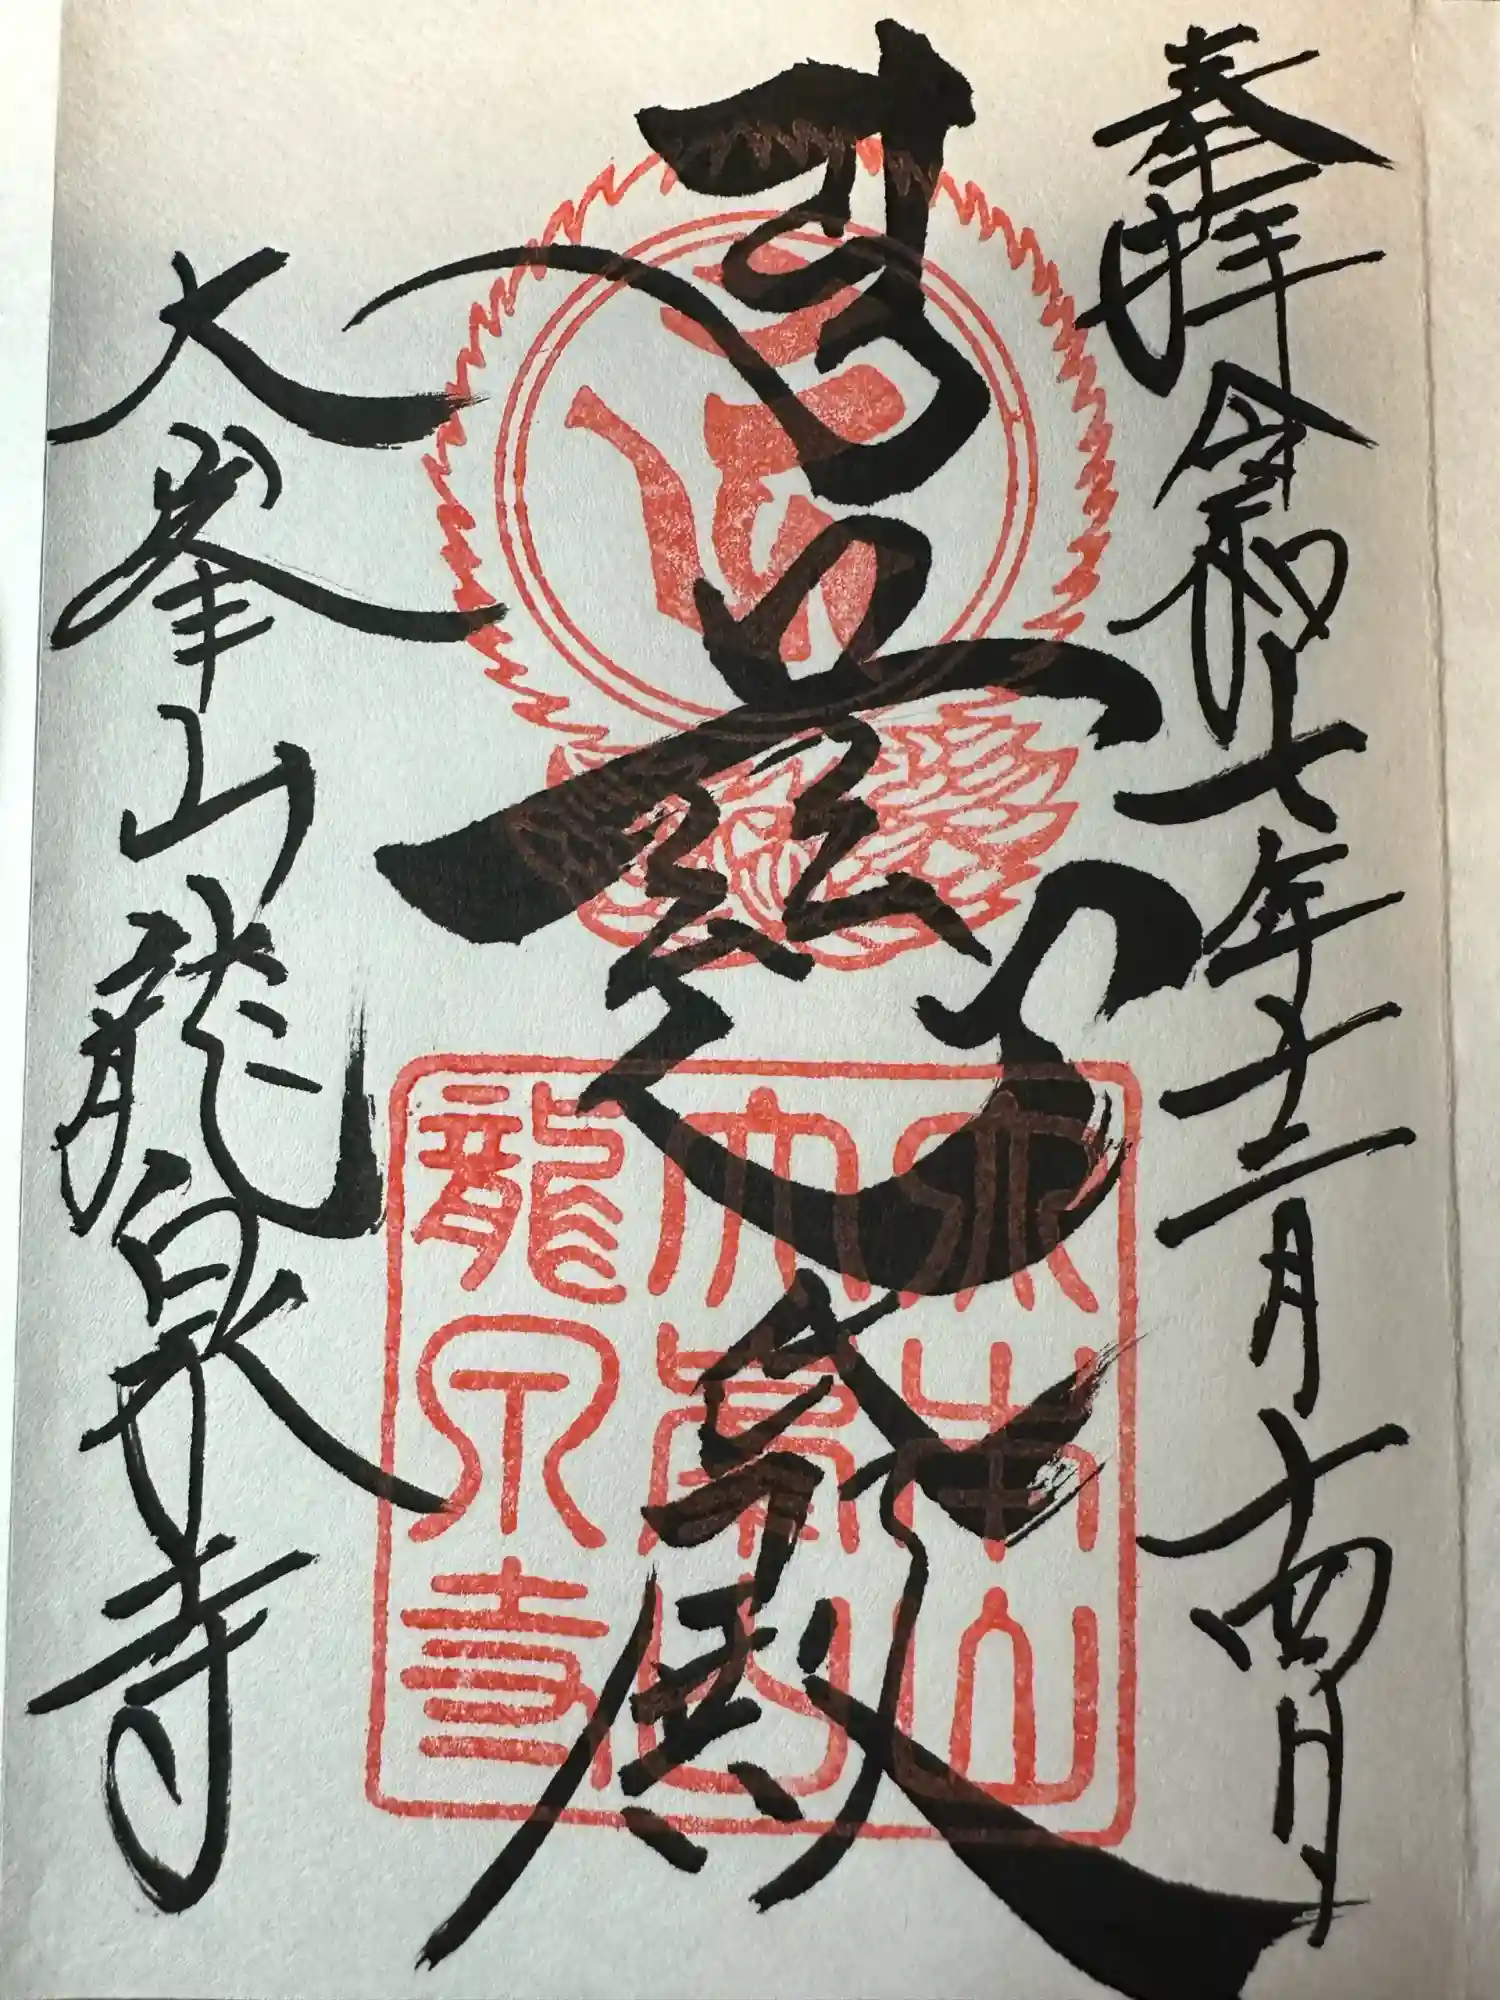 奉拝 令和七年十二月十四日
慈
殿
大峯山龍泉寺
大峯山
龍泉寺